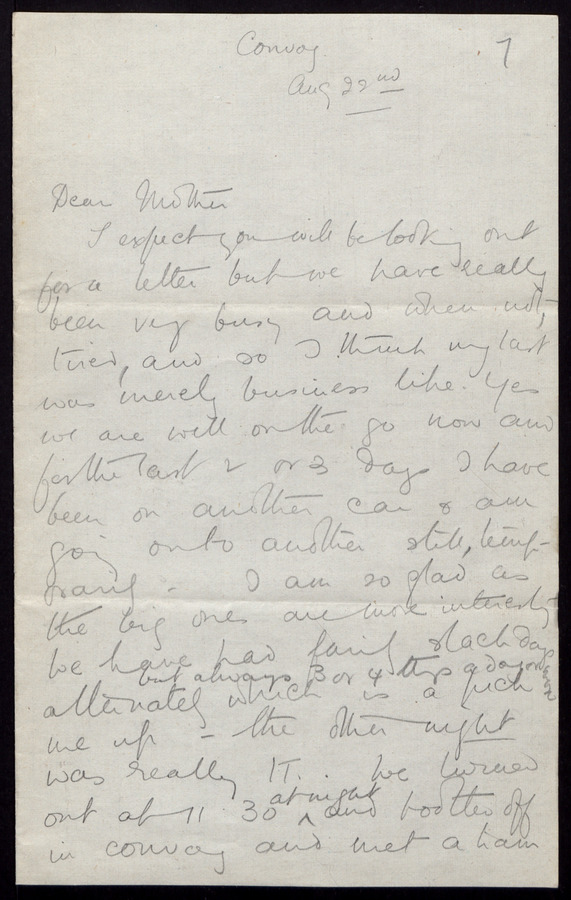 Convoy
7
Aug 22nd
Dear Mother
I expect you will be looking out
for a letter but we have really
been very busy and when not,
tired, and so I think my last
was merely business like. Yes
we are well on the go now and
for the last 2 or 3 days I have
been on another car & am
going onto another still, temp-
orarily - I am so glad as
the big ones are more interesting
We have had fairly slack days
but always 3 or 4 trips a day or
alternately which is a pick
me up - the other night
was really IT. We turned
out at 11.30 at night and tootled off
in convoy and met a train